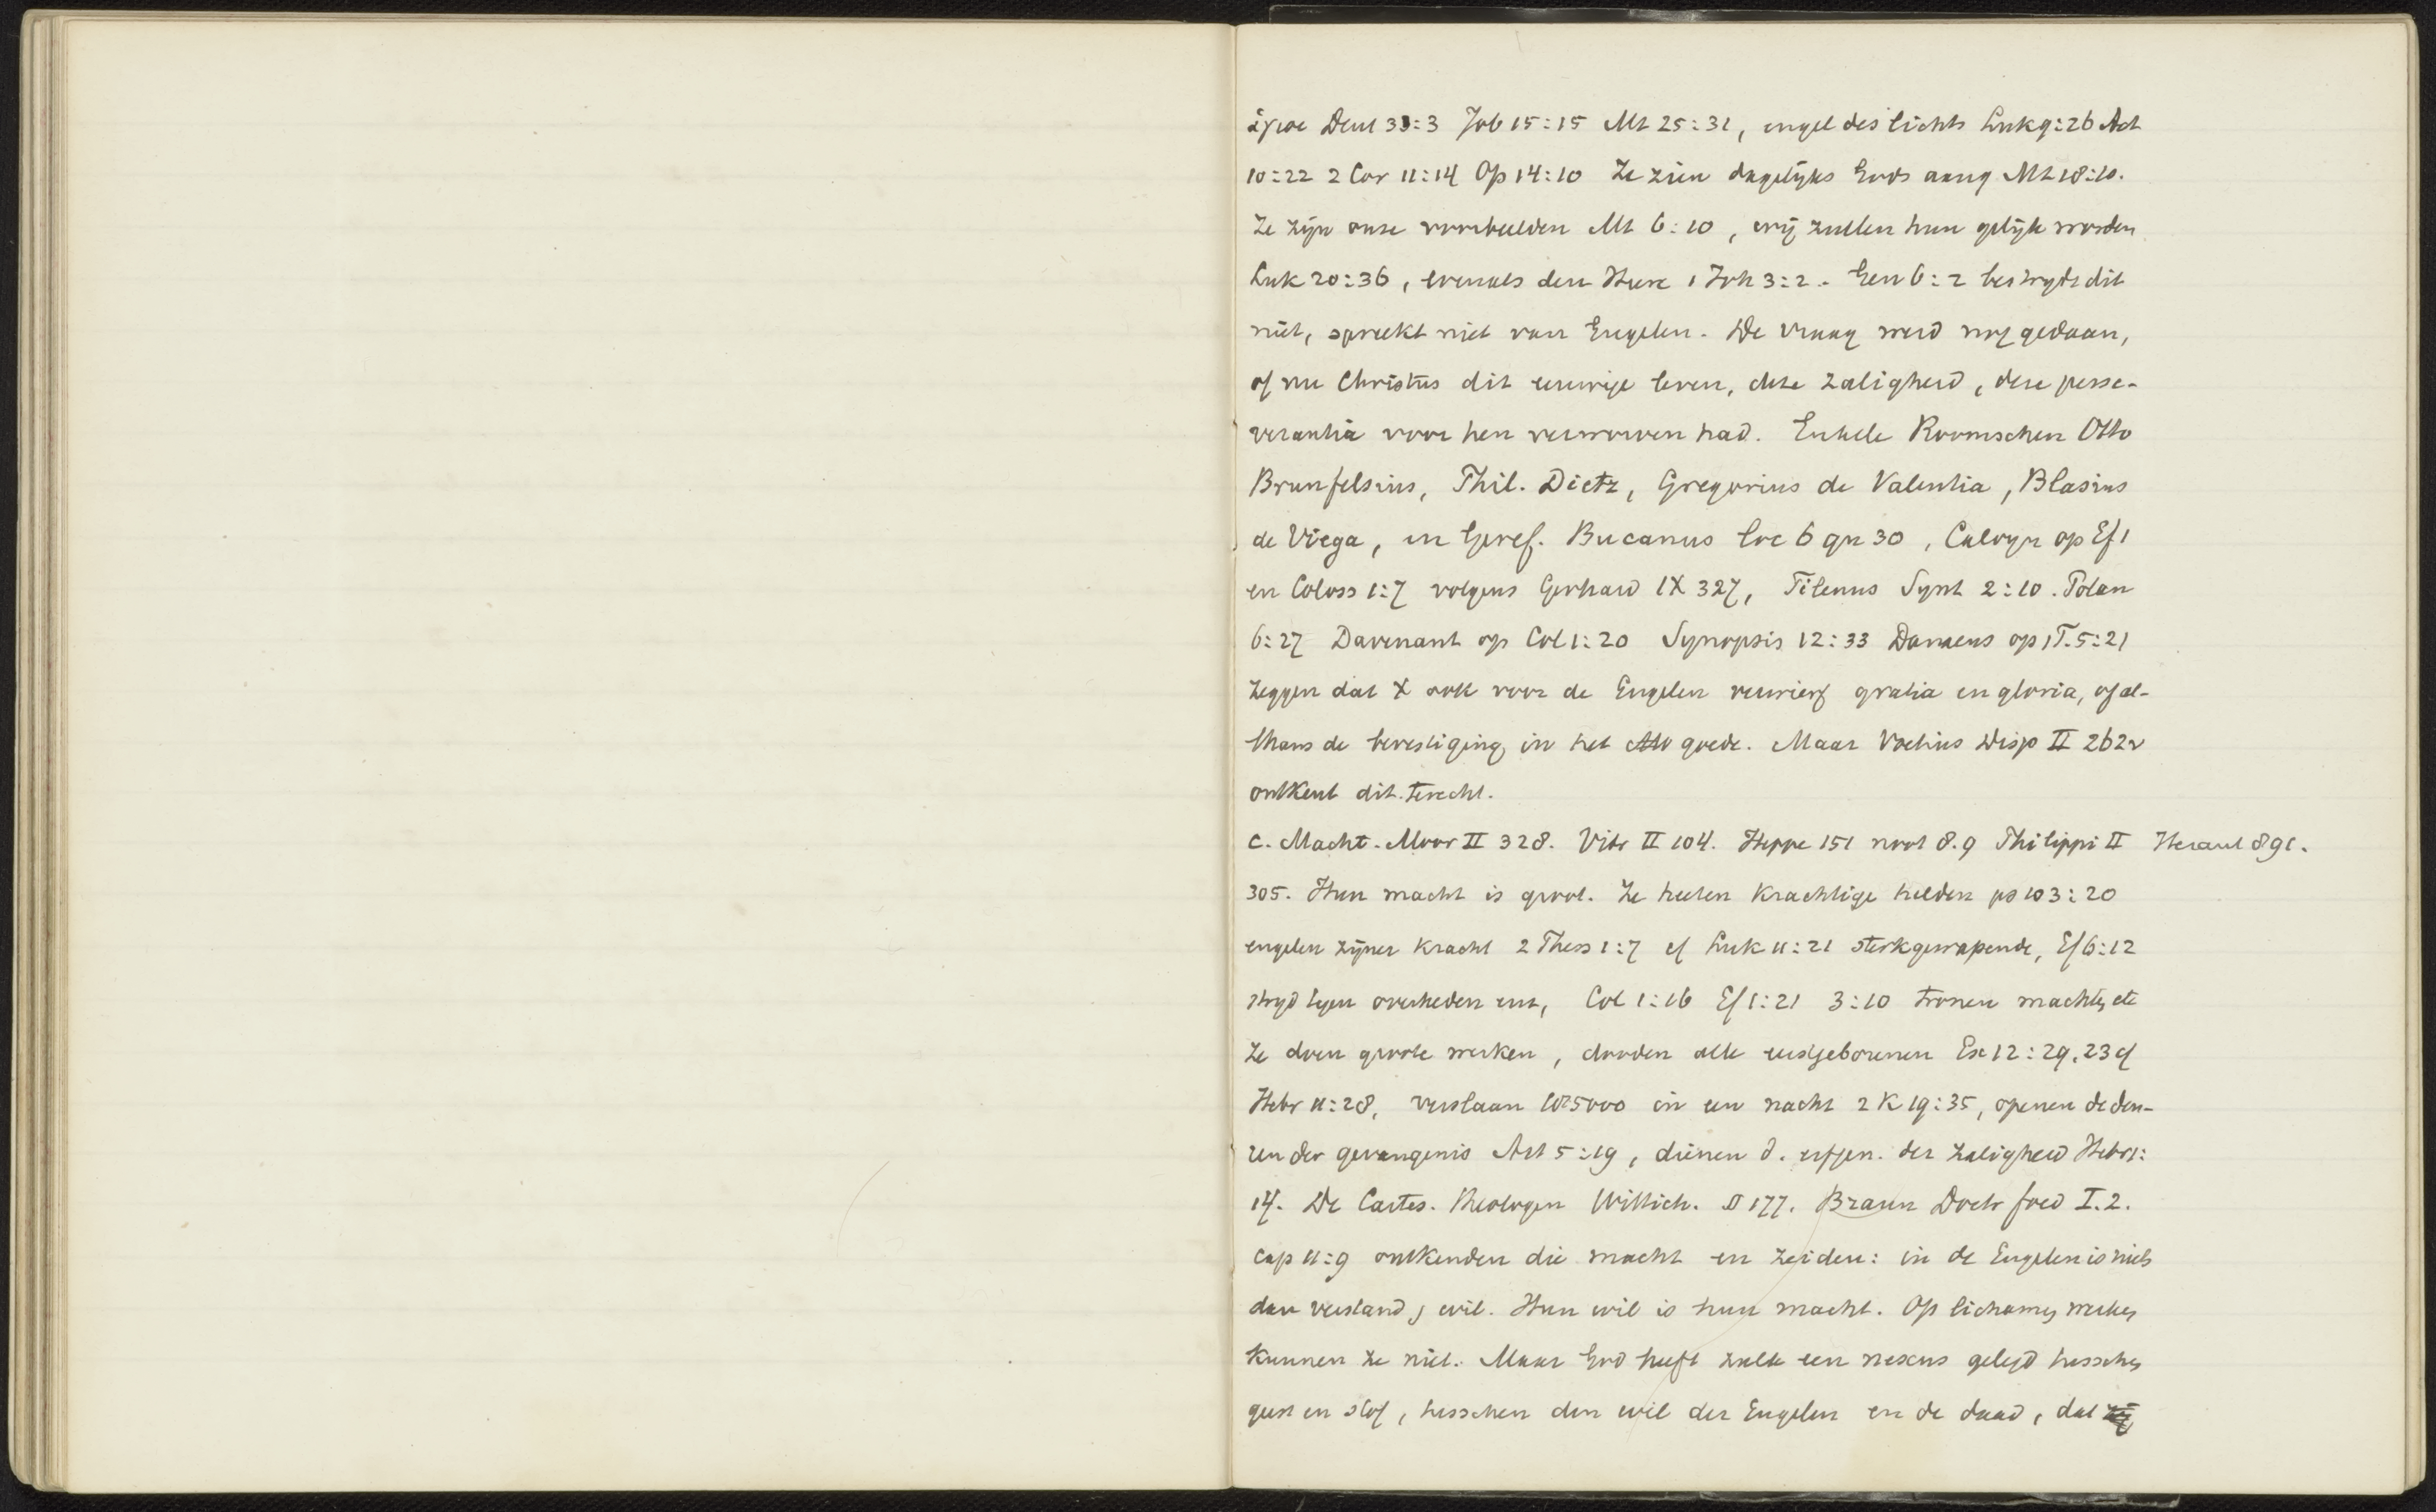 ἁγιοι Deut 33:3 Job 15:15 Mt 25:31, engel des lichts Luk 9:26 Act
10:22 2 Cor 11:14 Op 14:10 Ze zien dagelijks Gods aang Mt 18:10.
Ze zijn onze voorbeelden Mt 6:10, wij zullen hun gelijk worden
Luk 20:36, evenals den Heere 1 Joh 3:2. Gen 6:2 bestrydt dit
niet, spreekt niet van Engelen. De vraag werd nog gedaan,
of nu Christus dit eeuwige leven, deze zaligheid, deze perse-
verantia voor hen verworven had. Enkele Roomschen Otto
Brunfelsius, Phil. Dietz, Gregorius de Valentia, Blasius
de Viega, en Geref. Bucanus loc 6 qu 30, Calvyn op Ef 1
en Coloss 1:7 volgens Gerhard IX 327, Tilenus Synt 2:10. Polan
6:27 Davenant op Col 1:20 Synopsis 12:33 Danaeus op 1 T. 5:21
zeggen dat X ook voor de Engelen verwierf gratia en gloria, of al-
thans de bevestiging in het goede. Maar Voetius Disp II 262v
ontkent dit. terecht.
C. Macht. Moor II 328. Vitr II 104. Heppe 151 noot 8.9 Philippi II Heraut 891.
305. Hun macht is groot. Ze heeten krachtige helden ps 103:20
engelen zijner kracht 2 Thess 1:7 cf Luk 11:21 sterkgewapende, Ef 6:12
stryd tegen overheden enz, Col 1:16 Ef 1:21 3:10 tronen machten etc
Ze doen groote werken, dooden alle eerstgeborenen Ex 12:29, 23 cf
Hebr 11:28, verslaan 185000 in een nacht 2 K 19:35, openen de deu-
ren der gevangenis Act 5:19, dienen d. erfgen. der zaligheid Hebr 1:
14. De Cartes. Theologen Wittich. II 177. Braun Doctr foed I. 2.
cap 11:9 ontkenden die macht en zeiden: in de Engelen is niets
dan verstand, wil. Hun wil is hun macht. Op lichamen werken
kunnen ze niet. Maar God heeft zulk een nexus gelegd tusschen
geest en stof, tusschen den wil der Engelen en de daad, dat